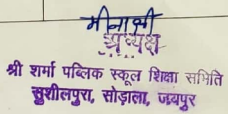 मीनाक्षी
अध्यक्ष
श्री शर्मा पब्लिक स्कूल शिक्षा समिति
सुशीलपुरा, सोड़ाला, जयपुर